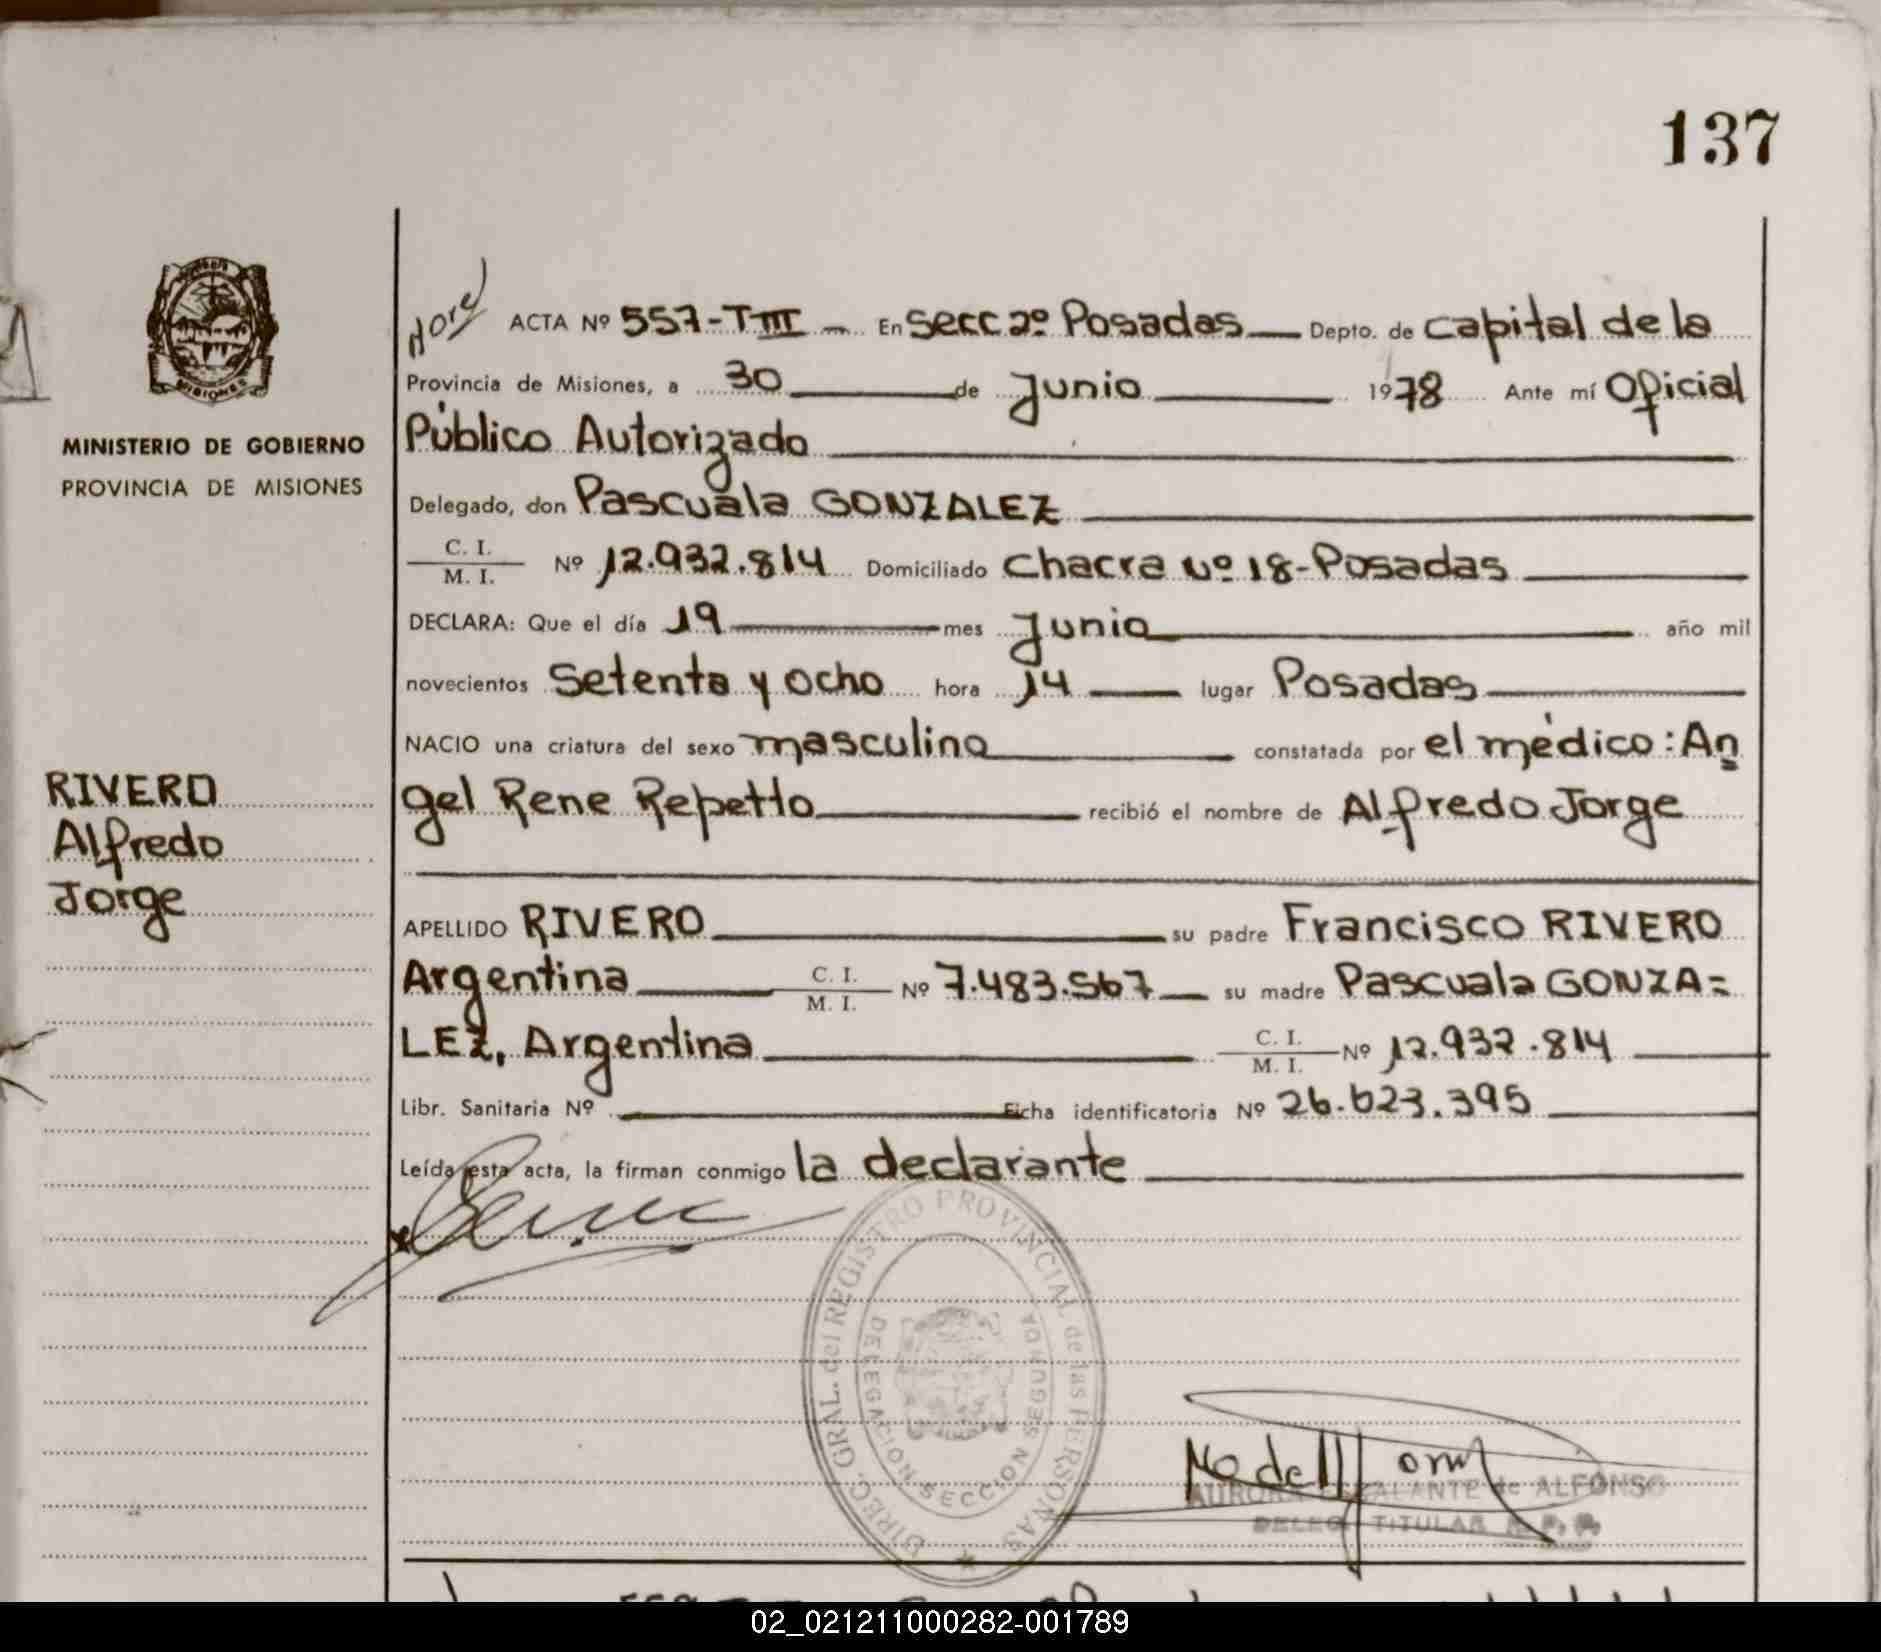 137
Nore
ACTA Nº 557-T III En Secc 2º Posadas Depto. de Capital de la
Provincia de Misiones, a 30 de Junio 1978 Ante mí Oficial
MINISTERIO DE GOBIERNO
PROVINCIA DE MISIONES
Público Autorizado
Delegado, don Pascuala GONZALEZ
C. I.
M. I. Nº 12.932.814 Domiciliado Chacra Nº 18-Posadas
DECLARA: Que el día 19 mes Junio año mil
novecientos Setenta y ocho hora 14 lugar Posadas
NACIO una criatura del sexo masculino constatada por el médico: An
gel Rene Repetto recibió el nombre de Alfredo Jorge
RIVERO
Alfredo
Jorge
APELLIDO RIVERO su padre Francisco RIVERO
Argentina C. I. M. I. Nº 7.483.567 su madre Pascuala GONZA=
LEZ, Argentina C. I. M. I. Nº 12.932.814
Libr. Sanitaria Nº Ficha identificatoria Nº 26.623.395
Leída esta acta, la firman conmigo la declarante
DIREC. GRAL. del REGISTRO PROVINCIAL de las PERSONAS
DELEGACION SECCION SEGUNDA
AURORA ESCALANTE de ALFONSO
DELEG. TITULAR R. P. P.
02_021211000282-001789